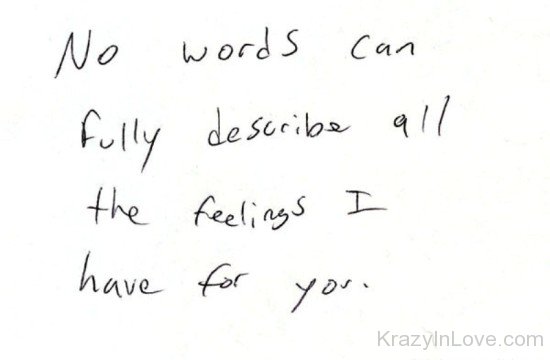 No words can
fully describe all
the feelings I
have for you.
KrazyInLove.com